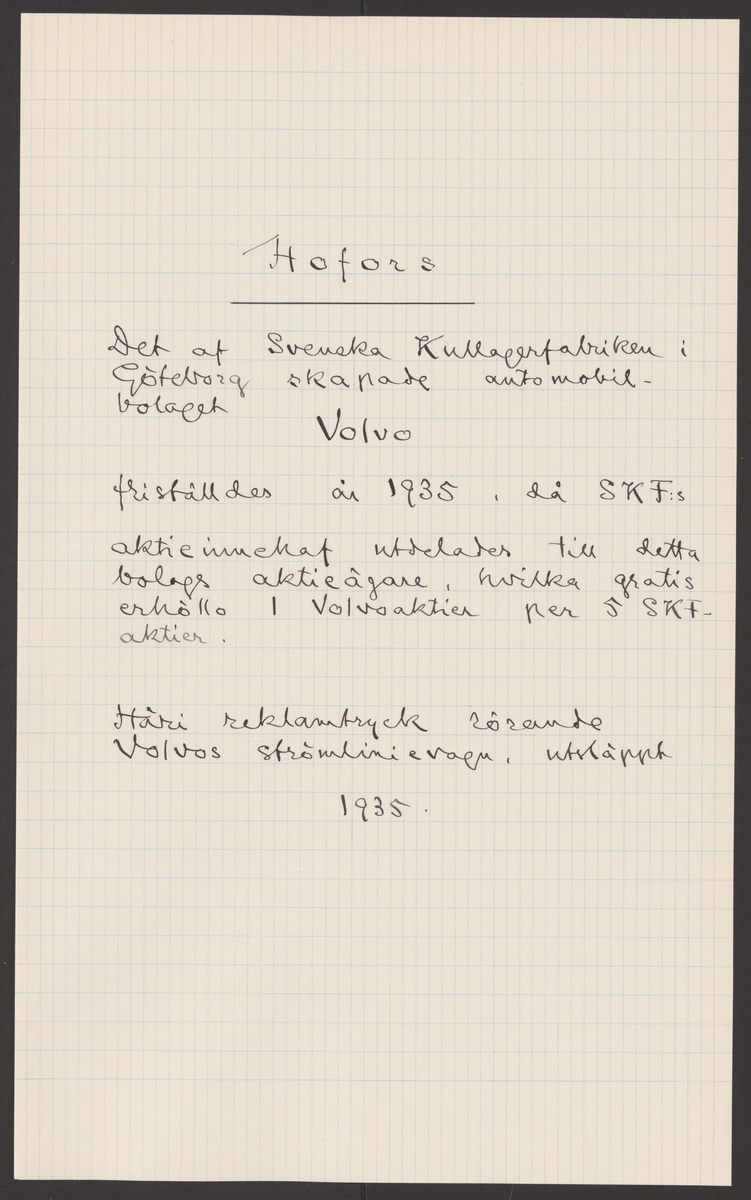 Hofors
Det af Svenska Kullagerfabriken i
Göteborg skapade automobil-
bolaget
Volvo
friställdes år 1935, då SKF:s
aktieinnehaf utdelades till detta
bolags aktieägare, hvilka gratis
erhöllo 1 Volvoaktier per 5 SKF-
aktier.
Häri reklamtryck rörande
Volvos strömlinievagn, utsläppt
1935.